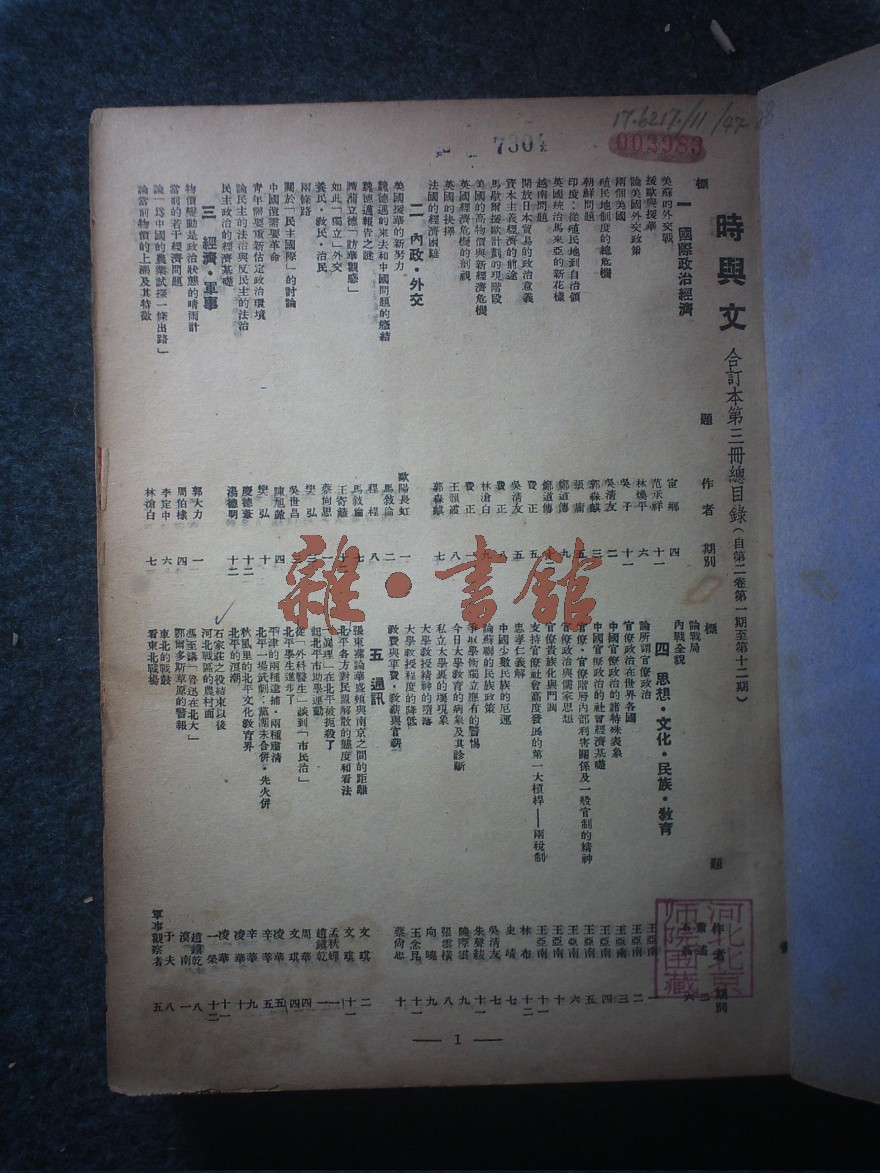 17.6217./11/47-88
730
003983
時與文 合訂本第三冊總目錄（自第二卷第一期至第十二期）
標 題 作者 期別
一 國際政治經濟
美蘇的外交戰 宦鄉 四
援歐與援華 范承祥 十一
論美國外交政策 林煥平 六
兩個美國 吳子 十一
殖民地制度的總危機 吳清友 二
朝鮮問題 郭森麒 三
印度：從殖民地到自治領 張 五
英國統治馬來亞的新花樣 鄭道傳 九
越南問題 鄭道傳
開放日本貿易的政治意義 費正 五
資本主義經濟的前途 吳清友 五
馬歇爾援歐計劃的現階段 費正 八
美國的高物價與新經濟危機 林滄白 九
英國經濟危機的剖視 費正
英國的抉擇 王領霞 八
法國的經濟困難 郭森麒 七
二 內政・外交
美國援華的新努力 歐陽長虹 一
魏德邁的來去和中國問題的癥結 馬敘倫 二
魏德邁報告之謎 程程 八
讀蒲立德「訪華觀感」 馬敘倫 七
如此「獨立」外交 王寄蘺
養民・教民・治民 蔡尚思 一
兩條路 樊弘
關於「民主國際」的討論 吳世昌
中國還需要革命 陳旭麓 四
青年需要重新估定政治環境 樊弘 十
論民主的法治與反民主的法治 慶德苓 十二
民主政治的經濟基礎 湯德明 十二
三 經濟・軍事
物價變動是政治狀態的晴雨計 郭大力 一
當前的若干經濟問題 周伯棣 四
論「爲中國的農業試探一條出路」 李定中 六
論當前物價的上漲及其特徵 林滄白 七
標 題 作者 期別
論戰局
內戰全貌 六
四 思想・文化・民族・教育
論所謂官僚政治 王亞南 一
官僚政治在世界各國 王亞南 二
中國官僚政治的諸特殊表象 王亞南 三
中國官僚政治的社會經濟基礎 王亞南 四
官僚・官僚階層內部利害關係及一般官制的精神 王亞南 五
官僚政治與儒家思想 王亞南 六
官僚貴族化與門閥 王亞南 十
支持官僚社會高度發展的第一大槓桿——兩稅制 王亞南 十一
忠孝仁義解 林布 十二
中國少數民族的厄運 史靖 七
論蘇聯的民族政策 吳清友 七
爭取學術獨立應有的警惕 朱聲紱 十一
今日大學教育的病象及其診斷 陳際雲 九
私立大學裏的壞現象 張雲橫 八
大學教授精神的墮落 向曉 九
大學教授程度的降低 王念民 十
教費與軍費・教薪與官薪 蔡尚思 十一
五 通訊
張東蓀論華盛頓與南京之間的距離 文琪 二
北平各方對民盟解散的態度和看法 文琪 十一
「眞理」在北平被扼殺了 孟秋婦 一
記北平市助學運動 趙鎭乾 一
從「外科醫生」談到「市民治」 周華 四
北平學生進步了 文琪 四
平津的兩種逮捕・兩種肅清 凌華 五
北平一場武劇：黨團未合併・先火併 辛華 五
秋風裏的北平文化教育界 辛華 九
北平的狙潮 凌華 十
石家莊之役結束以後 凌華 十一
河北戰區的農村面 一榮 十二
馮至講「魯迅在北大」 趙鎭乾 八
鄂爾多斯草原的警報 漠南 一
東北的戰鼓 于夫 八
看東北戰場 軍事觀察者 五
— 1 —
河北北京師院圖藏
雜・書館